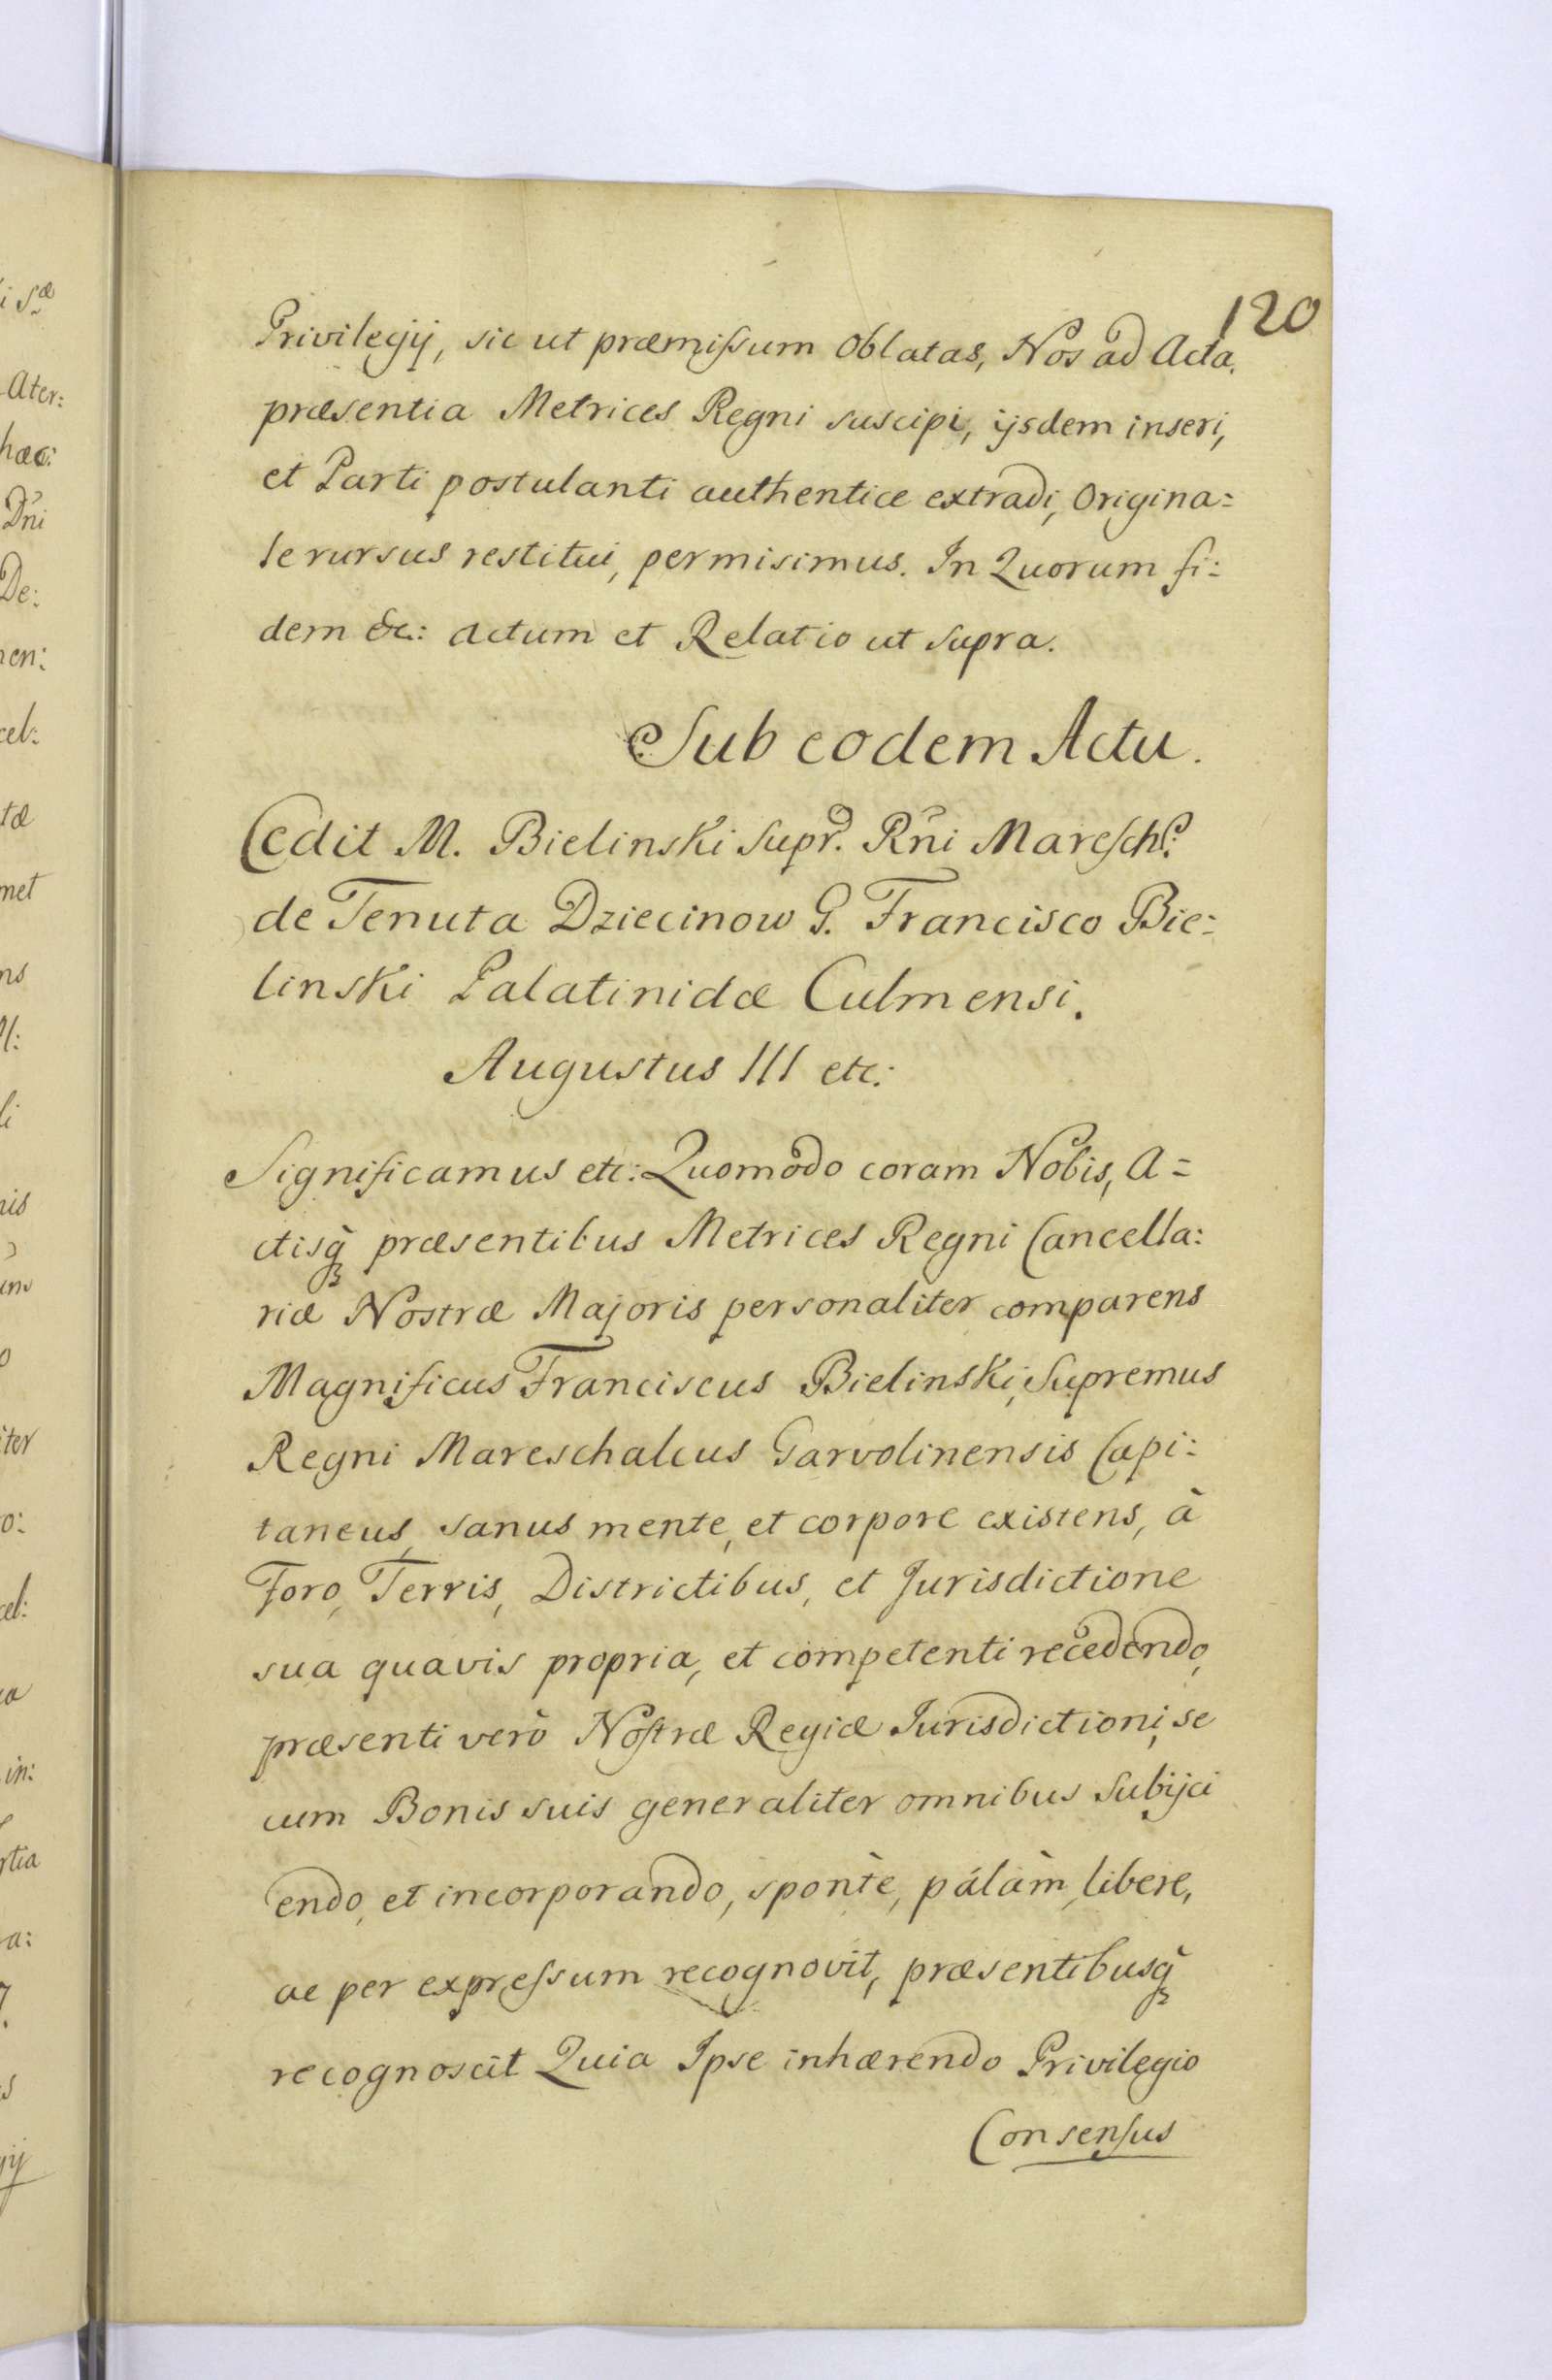 120
Privilegij, sic ut præmissum oblatas, Nos ad Acta
præsentia Metrices Regni suscipi, ijsdem inseri,
et Parti postulanti authentice extradi, Origina=
le rursus restitui, permisimus. In Quorum fi:
dem &c: actum et Relatio ut supra.
Sub eodem Actu.
Cedit M. Bielinski Supr. Rni Maresch:
de Tenuta Dziecinow G. Francisco Bie:
linski Palatinidæ Culmensi.
Augustus III etc:
Significamus etc: Quomodo coram Nobis, A=
ctisq̀ præsentibus Metrices Regni Cancella:
riæ Nostræ Majoris personaliter comparens
Magnificus Franciscus Bielinski, Supremus
Regni Mareschalcus Garvolinensis Capi:
taneus, sanus mente, et corpore existens, à
Foro, Terris, Districtibus, et Jurisdictione
sua quavis propria, et competenti recedendo,
præsenti verò Nostræ Regiæ Jurisdictioni, se
cum Bonis suis generaliter omnibus Subijci
endo, et incorporando, spontè, pálàm, libere,
ac per expressum recognovit, præsentibusq̀
recognoscit Quia Ipse inhærendo Privilegio
Consensus